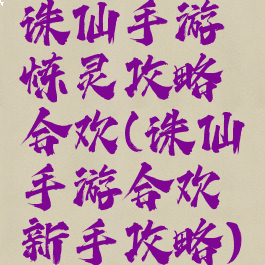 诛仙手游
炼灵攻略
合欢(诛仙
手游合欢
新手攻略)